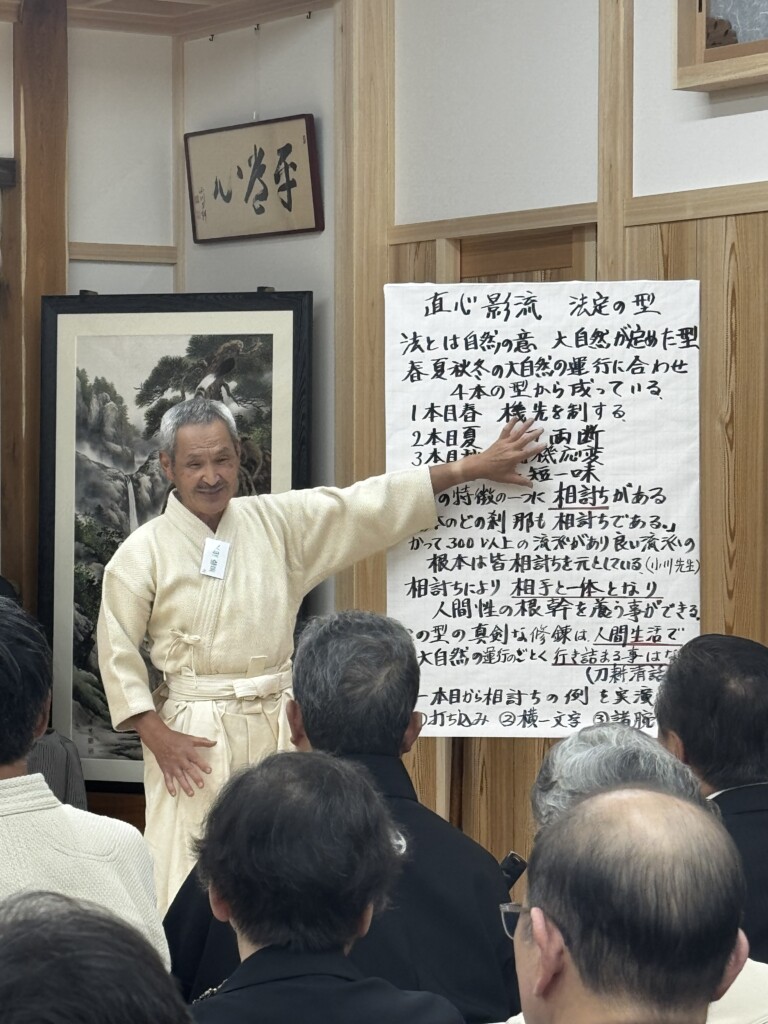 平常心
直心影流 法定の型
法とは自然の意 大自然が定めた型
春夏秋冬の大自然の運行に合わせ
4本の型から成っている
1本目春 機先を制する
2本目夏 両断
3本目 機応変
短一味
の特徴の一つに 相討ちがある
のどの刹那も 相討ちである。」
かって300以上の流派があり良い流派の
根本は皆相討ちを元としている(小川先生)
相討ちにより 相手と一体となり
人間性の根幹を養う事ができる
の型の真剣な修錬は、人間生活で
大自然の運行のごとく 行き詰まる事はな
(刀耕清話
一本目から相討ちの例を実演
①打ち込み ②横一文字 ③諸腕